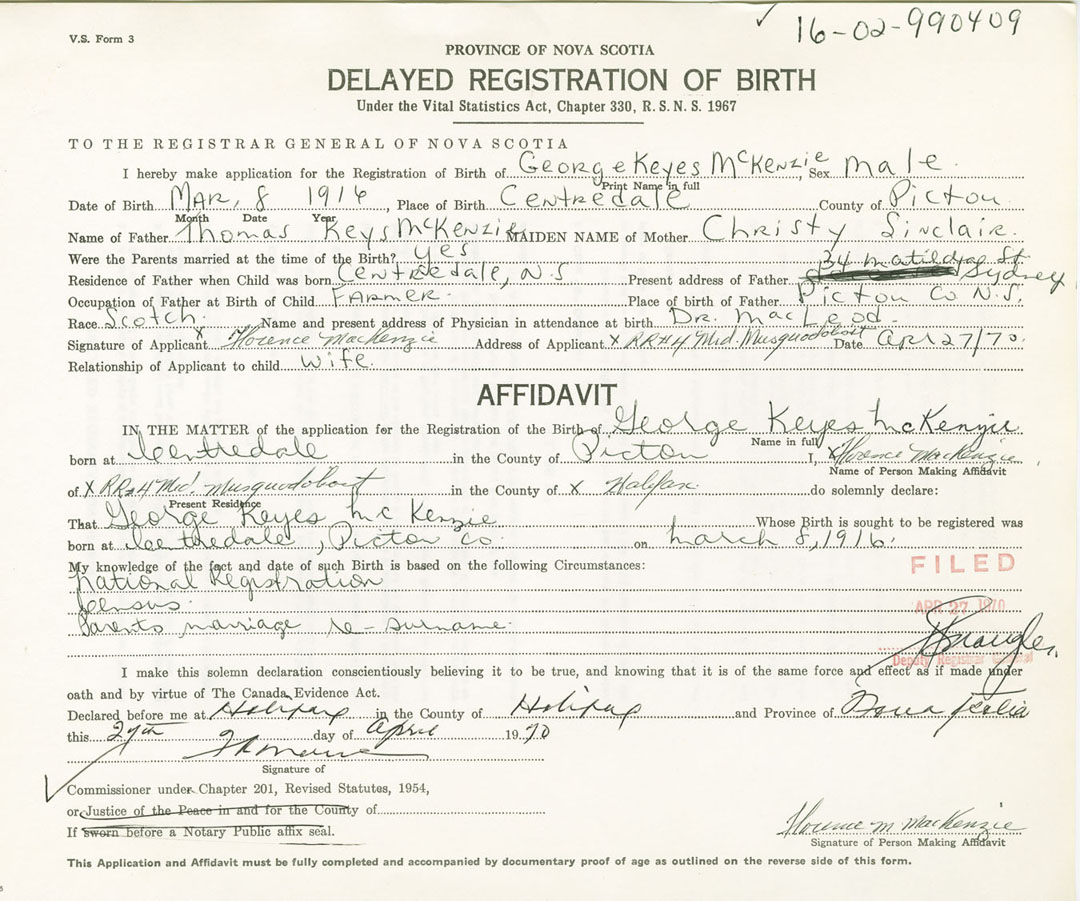 16-02-990409
V.S. Form 3
PROVINCE OF NOVA SCOTIA
DELAYED REGISTRATION OF BIRTH
Under the Vital Statistics Act, Chapter 330, R.S.N.S. 1967
TO THE REGISTRAR GENERAL OF NOVA SCOTIA
I hereby make application for the Registration of Birth of George Keyes McKenzie, Sex male.
Print Name in full
Date of Birth MAR, 8 1916, Place of Birth Centredale County of Pictou
Month Date Year
Name of Father Thomas Keys McKenzie MAIDEN NAME of Mother Christy Sinclair.
Were the Parents married at the time of the Birth? yes
34 Matilda St. Sydney
Residence of Father when Child was born Centredale, N.S Present address of Father
Occupation of Father at Birth of Child FARMER. Place of birth of Father Pictou Co N.S.
Race Scotch. Name and present address of Physician in attendance at birth Dr. MacLeod.
Signature of Applicant X Florence MacKenzie Address of Applicant X RR#4 Mid. Musquodoboit Date Apr 27/70.
Relationship of Applicant to child wife.
AFFIDAVIT
IN THE MATTER of the application for the Registration of the Birth of George Keyes McKenzie
Name in full
born at Centredale in the County of Pictou I, X Florence MacKenzie
Name of Person Making Affidavit
of X RR#4 Mid. Musquodoboit in the County of X Halifax do solemnly declare:
Present Residence
That George Keyes McKenzie Whose Birth is sought to be registered was
born at Centredale, Pictou Co. on March 8, 1916.
My knowledge of the fact and date of such Birth is based on the following Circumstances:
National Registration
FILED
Census.
APR 27 1970
Parents marriage re-surname.
Deputy Registrar General
I make this solemn declaration conscientiously believing it to be true, and knowing that it is of the same force and effect as if made under
oath and by virtue of The Canada Evidence Act.
Declared before me at Halifax in the County of Halifax and Province of Nova Scotia
this 27th day of April 1970
Signature of
Commissioner under Chapter 201, Revised Statutes, 1954,
or Justice of the Peace in and for the County of
If sworn before a Notary Public affix seal.
Florence M MacKenzie
Signature of Person Making Affidavit
This Application and Affidavit must be fully completed and accompanied by documentary proof of age as outlined on the reverse side of this form.